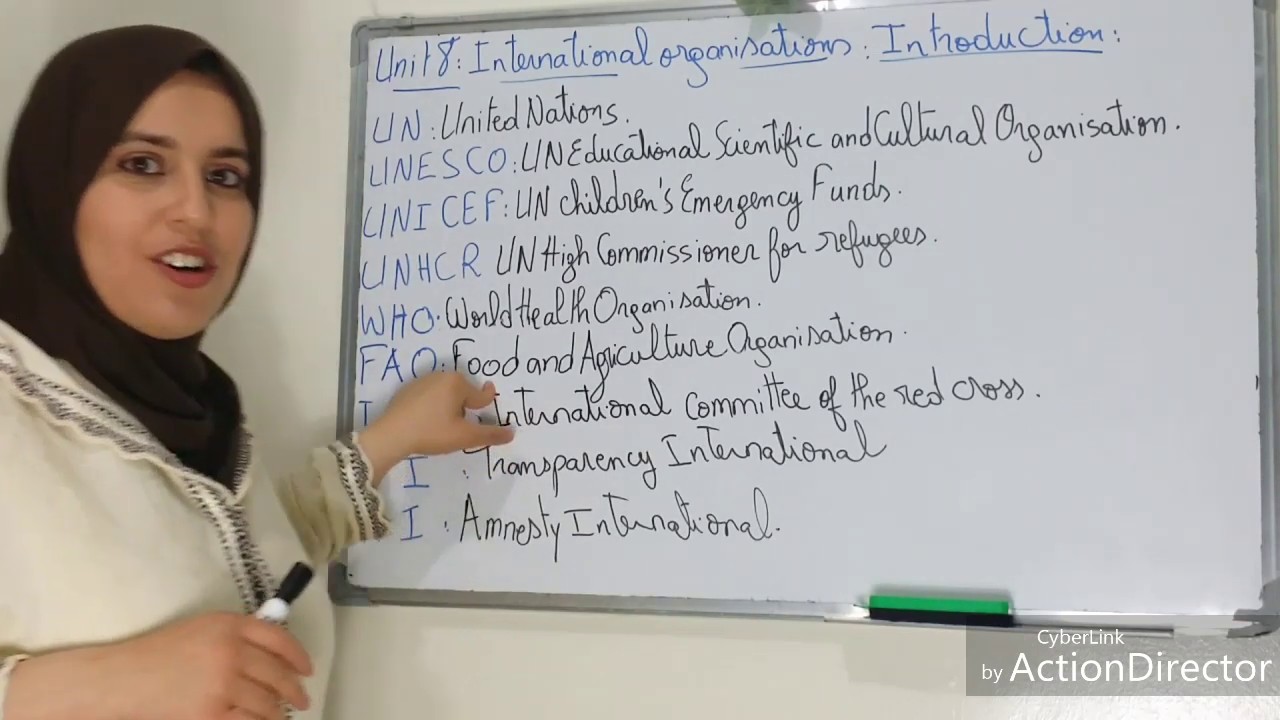 Unit 8: International organisations: Introduction:
UN: United Nations.
UNESCO: UN Educational Scientific and Cultural Organisation.
UNICEF: UN children's Emergency Funds.
UNHCR UN High Commissioner for refugees.
WHO: World Health Organisation.
FAO: Food and Agriculture Oganisation.
I : International committee of the red cross.
I : Transparency International
I : Amnesty International.
CyberLink
by ActionDirector